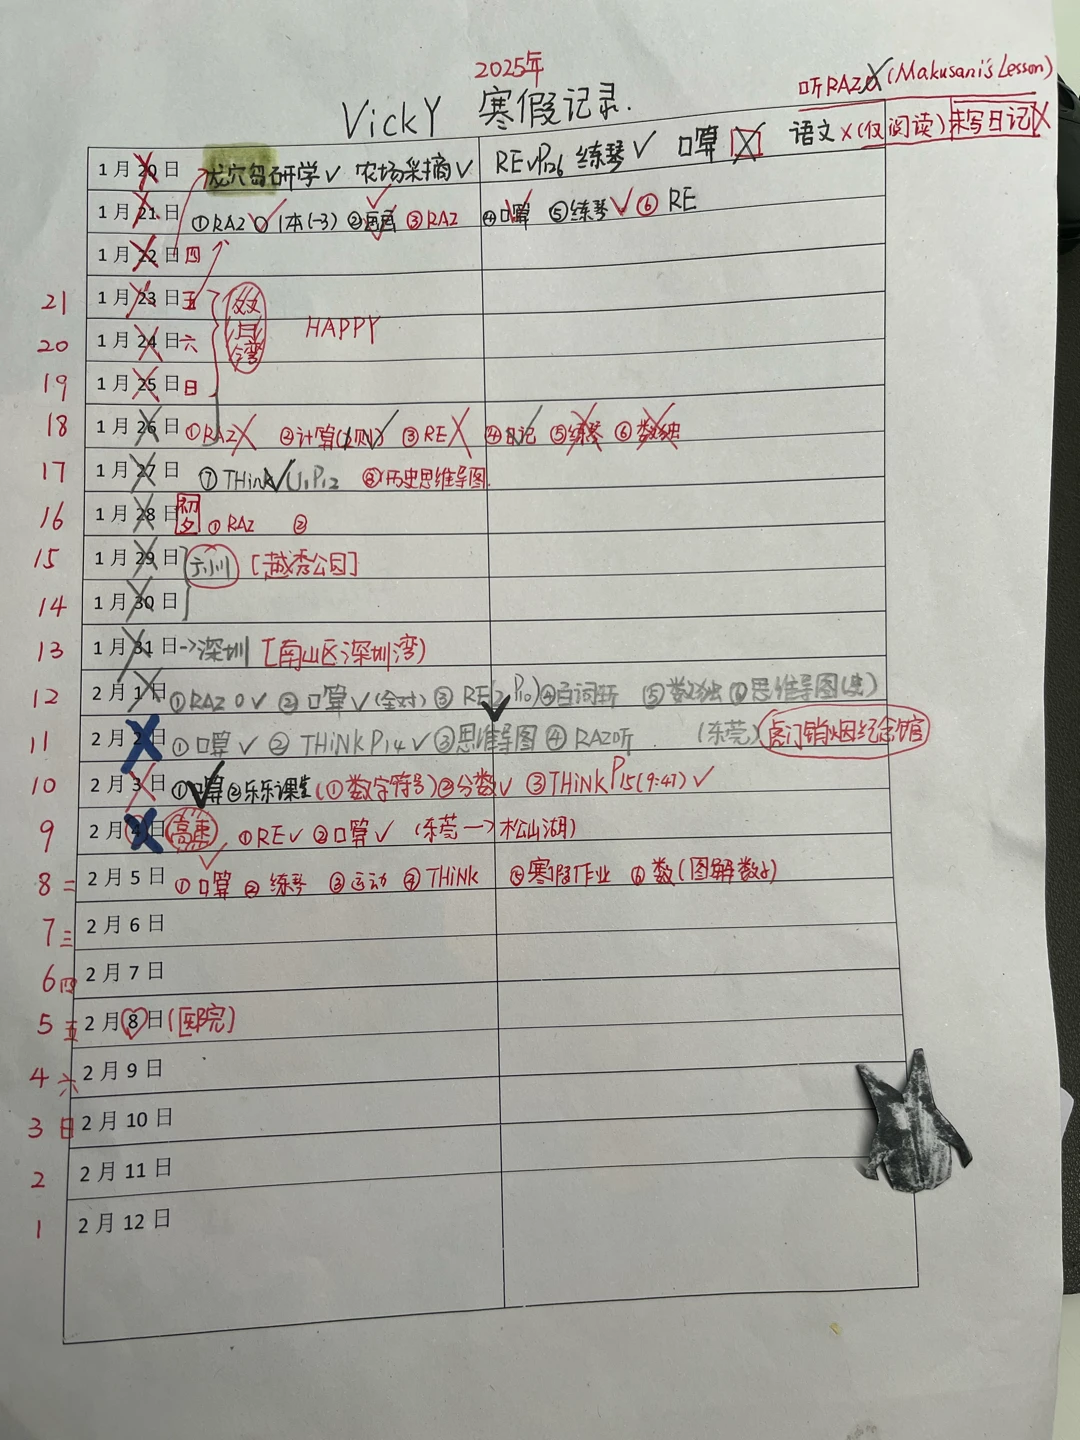 2025年
VickY 寒假记录.
听RAZ (Makusani's Lesson)
语文×(仅阅读) 未写日记×
1月20日 龙穴岛研学✓ 农场采摘✓ RE✓P26 练琴✓ 口算×
1月21日 ①RAZ O 1本(-3) ②画画 ③RAZ ④口算 ⑤练琴✓ ⑥RE
1月22日四
21 1月23日五 双月湾 HAPPY
20 1月24日六
19 1月25日日
18 1月26日 ①RAZ× ②计算 ③RE× ④日记 ⑤练琴 ⑥数独
17 1月27日 ⑦THink✓U1P12 ⑧历史思维导图
16 1月28日 初夕 ①RAZ ②
15 1月29日 [越秀公园]
14 1月30日
13 1月31日->深圳 [南山区深圳湾)
12 2月1日 ①RAZ O✓ ②口算✓(全对) ③RE P10 ④百词斩 ⑤数独 ⑥思维导图(史)
11 2月2日 ①口算✓ ②THiNK P14✓ ③思维导图 ④RAZ听 (东莞) 虎门销烟纪念馆
10 2月3日 ①口算 ②乐乐课堂(①数字符号)②分数✓ ③THiNK P15(9:47)✓
9 2月4日 高速 ①RE✓ ②口算✓ (东莞—>松山湖)
8 二 2月5日 ①口算 ②练琴 ③运动 ④THiNK ⑤寒假作业 ⑥数(图解数学)
7 三 2月6日
6 四 2月7日
5 五 2月8日(医院)
4 六 2月9日
3 日 2月10日
2 2月11日
1 2月12日